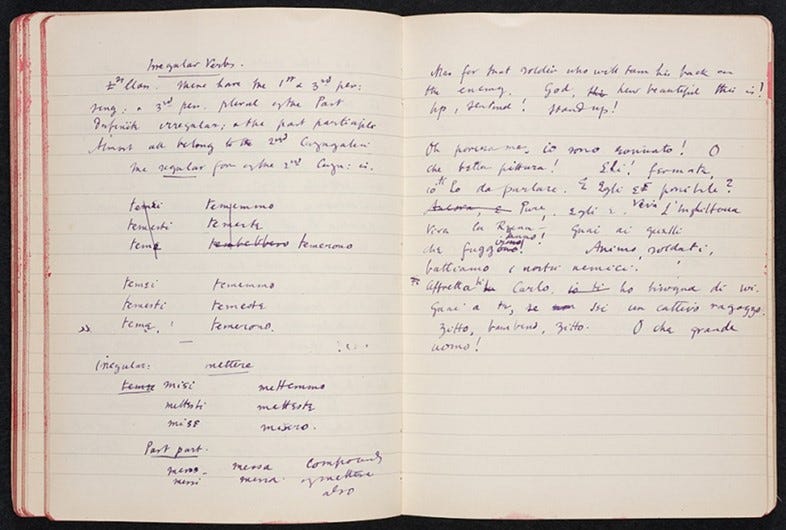 Irregular Verbs.
1st Class. These have the 1st & 3rd per:
sing: & 3rd per. plural of the Past
Definite irregular; & the past participle
Almost all belong to the 2nd Conjugation
The regular form of the 2nd Conju: is.
temei tememmo
temesti temeste
teme tembebbero temerono
temei tememmo
temesti temeste
temé, temerono.
Irregular: mettere
teme misi mettemmo
mettesti metteste
mise misero.
Past part.
messo messa Compounds
messi messa of mettere
also
Alas for that soldier who will turn his back on
the enemy. God, how beautiful this is!
Up, Sentinel! Stand up!
Oh povera me, io sono rovinato! O
che bella pittura! Ehi! fermate,
io ti ho da parlare. E Egli È possibile?
Ancora, E Pure, egli è. Viva l'Inghilterra
Viva la Regina - Guai ai quelli
che fuggono! Animo, soldati,
battiamo i nostri nemici.
Affrettati Carlo, io ti ho bisogna di vi.
Guai a te, se non sei un cattivo ragazzo.
Zitto, bambino, Zitto. O che grande
uomo!